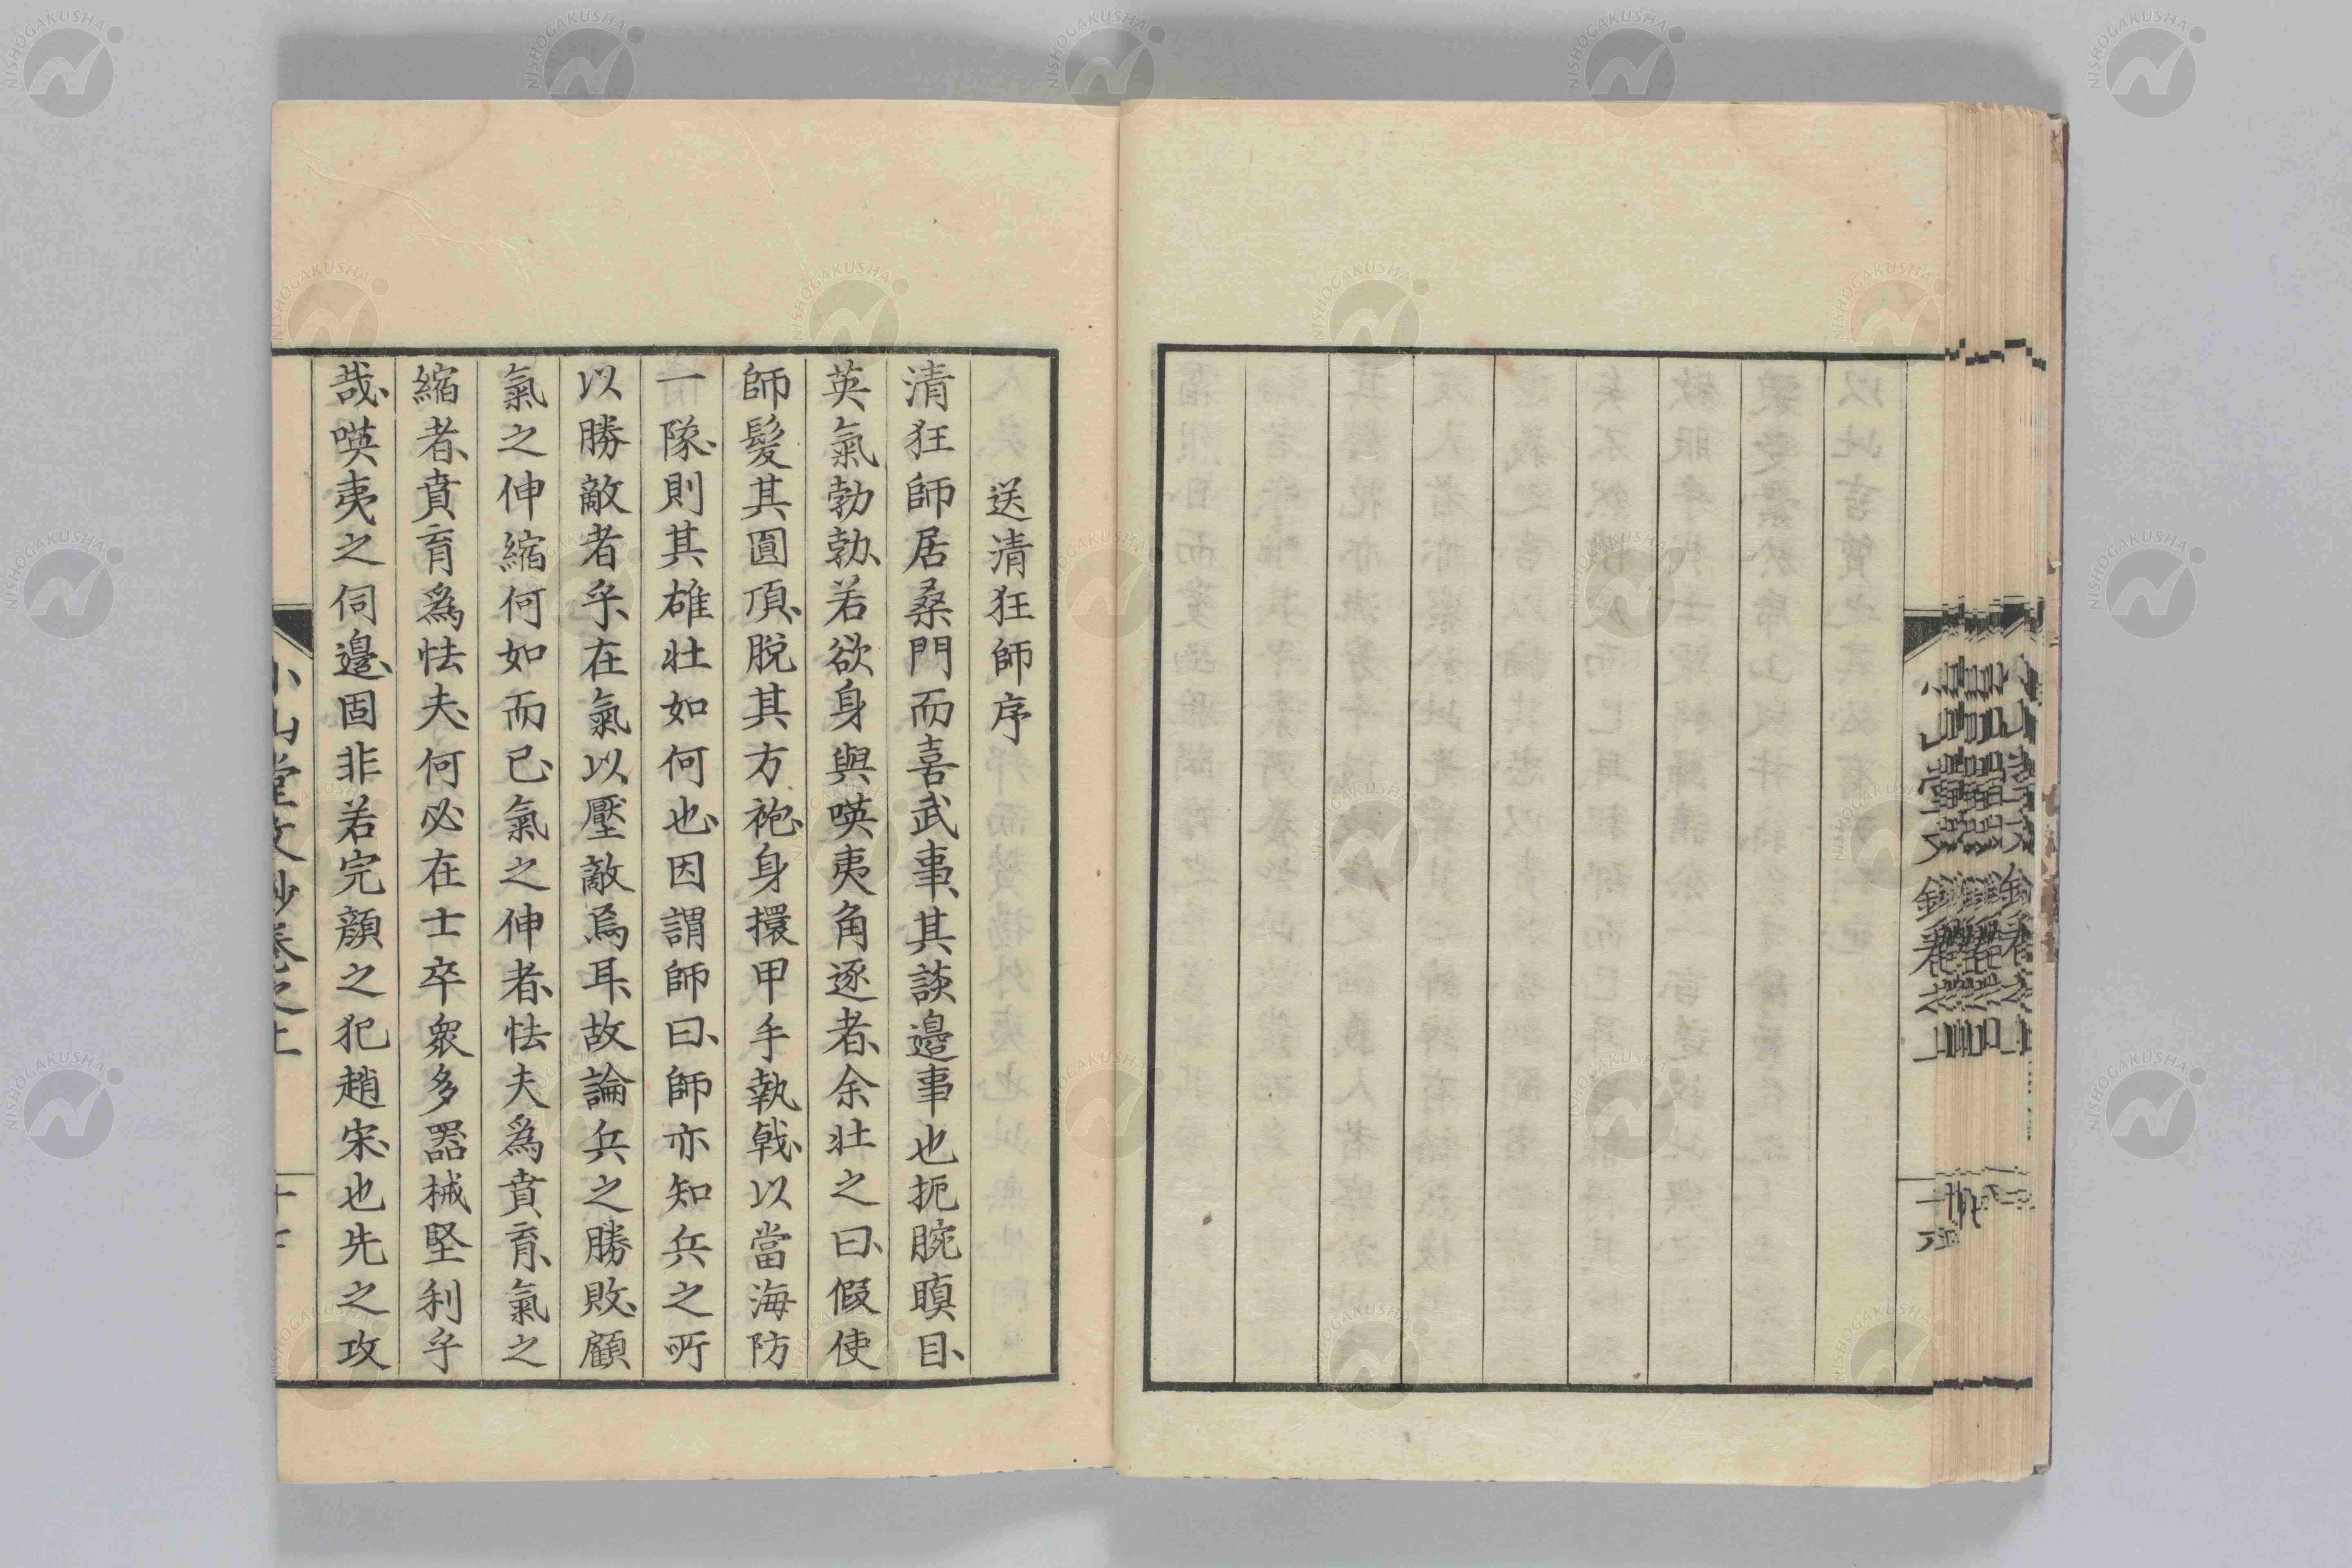 送清狂師序
清狂師居桑門而喜武事、其談邊事也扼腕瞋目、
英氣勃勃、若欲身與暎夷角逐者、余壯之曰、假使
師髮其圓頂、脫其方袍、身擐甲手執戟、以當海防
一隊、則其雄壯如何也、因謂師曰、師亦知兵之所
以勝敵者乎、在氣以壓敵焉耳、故論兵之勝敗、顧
氣之伸縮何如而已、氣之伸者、怯夫爲賁育、氣之
縮者、賁育爲怯夫、何必在士卒衆多器械堅利乎
哉、暎夷之伺邊、固非若完顏之犯趙宋、也先之攻
小山堂文鈔卷之上
NISHOGAKUSHA